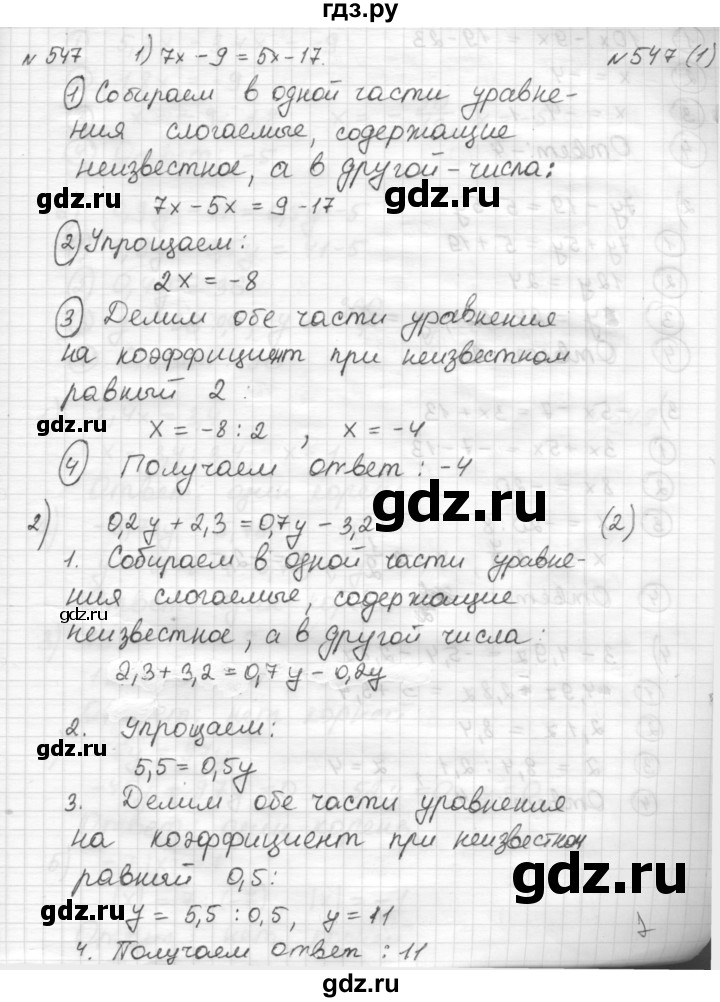 гдз.ру
№ 547 1) 7x - 9 = 5x - 17. № 547 (1)
① Собираем в одной части уравне-
ния слогаемые, содержащие
неизвестное, а в другой - числа:
gdz.ru gdz.ru
7x - 5x = 9 - 17
② Упрощаем:
2x = -8
③ Делим обе части уравнения
на коэффициент при неизвестном
равный 2 :
gdz.ru
x = -8 : 2 , x = -4
④ Получаем ответ : -4
gdz.ru
2) 0,2y + 2,3 = 0,7y - 3,2 (2)
1. Собираем в одной части уравне-
ния слогаемые, содержащие
gdz.ru
неизвестное, а в другой числа:
2,3 + 3,2 = 0,7y - 0,2y
2. Упрощаем:
gdz.ru
5,5 = 0,5y
3. Делим обе части уравнения
на коэффициент при неизвестном
равный 0,5:
gdz.ru
gdz.ru
y = 5,5 : 0,5, y = 11
4. Получаем ответ : 11
gdz.ru